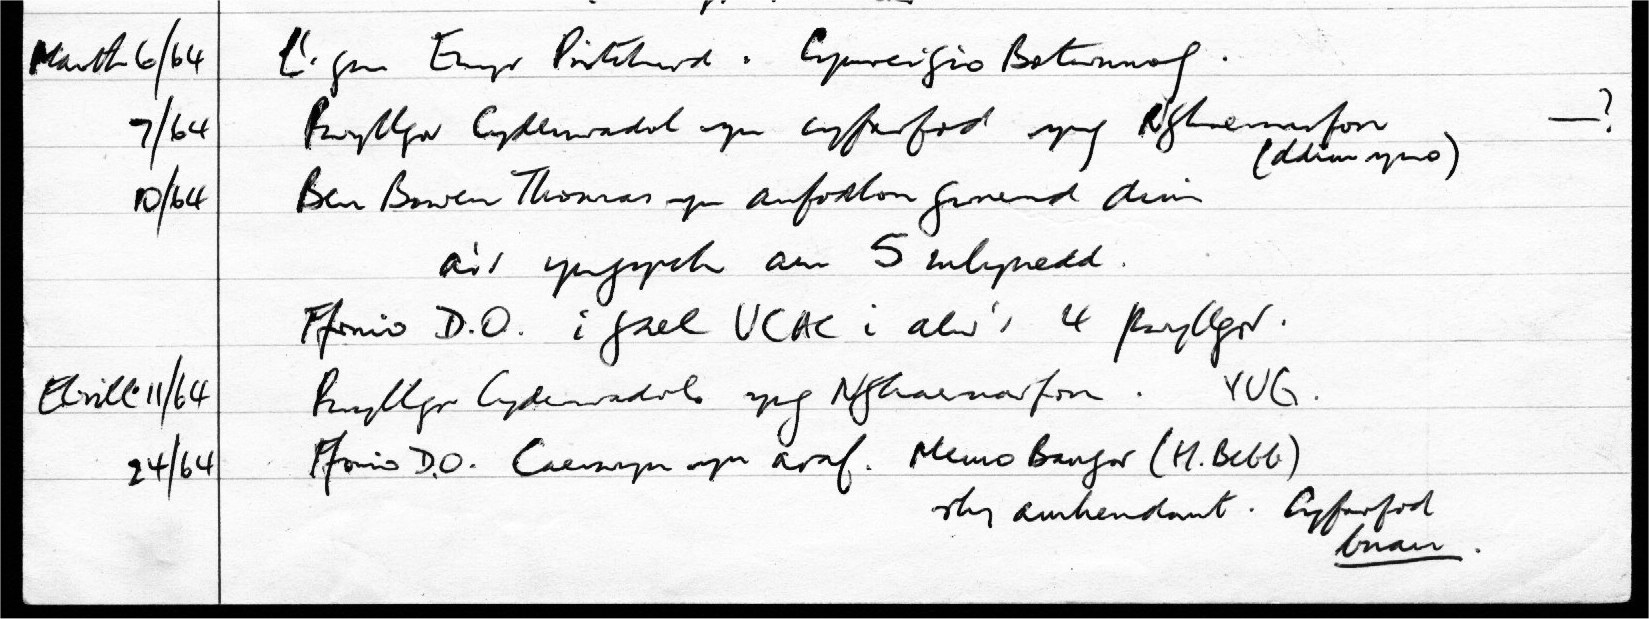 Mawrth 6/64 Ll. gan Emyr Pritchard. Cymreigio Botwnnog.
7/64 Pwyllgor Cydenwadol yn cyfarfod yng Nghaernarfon —?
(ddim yno)
10/64 Ben Bowen Thomas yn anfodlon gwneud dim
a'i ymgyrch am 5 mlynedd.
Ffonio D.O. i gael UCAC i alw'r 4 pwyllgor.
Ebrill 11/64 Pwyllgor Cydenwadol yng Nghaernarfon. YUG.
24/64 Ffonio D.O. Caerwyn yn araf. Memo Bangor (H. Bebb)
rhy amhendant. Cyfarfod
buan.